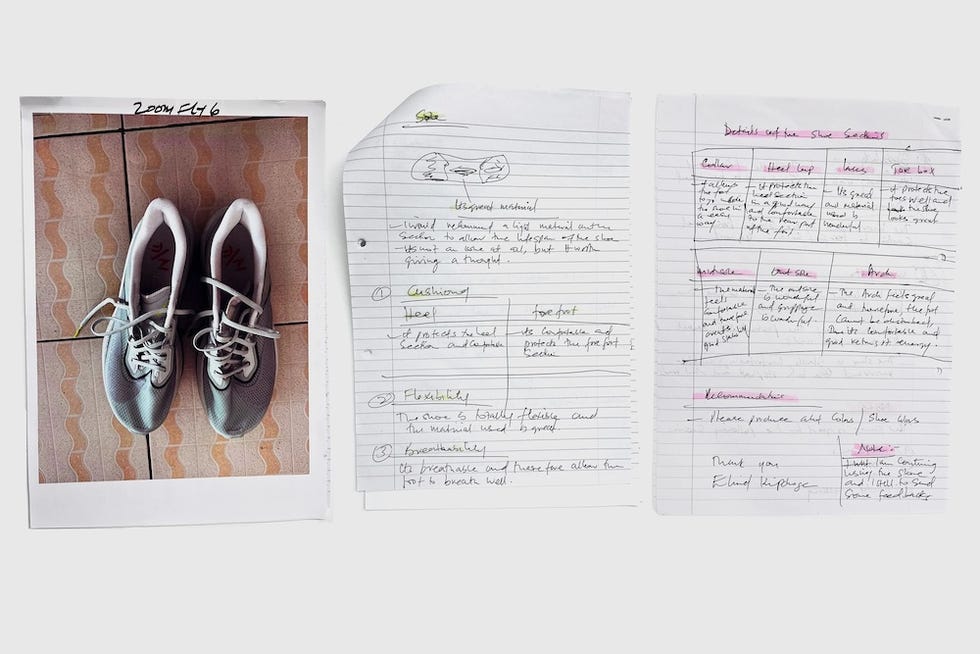 Zoom Fly 6
Sole
Its great material
I would recommend a light material on the
Section to allow the lifespan of the shoe
Its not an issue at all, but it worth
giving a thought.
① Cushioning
Heel
forefoot
It protects the heel
Section and Comfortable
Its Comfortable and
protects the fore foot
Section
② Flexibility
The shoe is totally flexible and
the material used is great.
③ Breathability
Its breathable and therefore allow the
foot to breath well.
Details of the Shoe Sections
Collar
Heel Cup
laces
Toe box
It allows
the foot
to go inside
the shoe in
a easy
way
It protects the
heel section
in a good way
and comfortable
to the rear part
of the foot
Its good
and material
used is
wonderful
It protects the
toes well and
looks great
Midsole
Out sole
Arch
The material
feels
Comfortable
and therefore
good stability
The outsole
is wonderful
and grippage
is wonderful.
The Arch feels great
and therefore the foot
Cannot be disturbed,
Thus its comfortable and
good returns of energy.
Recommendations
Please produce alot Colors / Shoe Colors
Thank you
Eliud Kipchoge
Note :-
I am continuing
using the shoe
and still to send
Some feedbacks